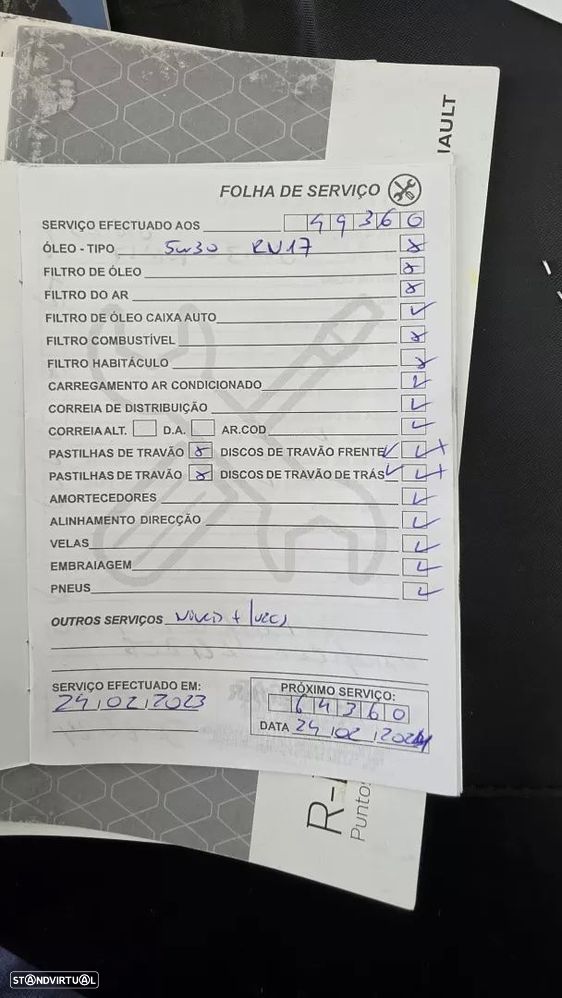 IAULT
FOLHA DE SERVIÇO
SERVIÇO EFECTUADO AOS 49360
ÓLEO - TIPO 5W30 RN17
FILTRO DE ÓLEO
FILTRO DO AR
FILTRO DE ÓLEO CAIXA AUTO
FILTRO COMBUSTÍVEL
FILTRO HABITÁCULO
CARREGAMENTO AR CONDICIONADO
CORREIA DE DISTRIBUIÇÃO
CORREIA ALT. D.A. AR.COD
PASTILHAS DE TRAVÃO DISCOS DE TRAVÃO FRENTE
PASTILHAS DE TRAVÃO DISCOS DE TRAVÃO DE TRÁS
AMORTECEDORES
ALINHAMENTO DIRECÇÃO
VELAS
EMBRAIAGEM
PNEUS
OUTROS SERVIÇOS
SERVIÇO EFECTUADO EM:
24,02,2023
PRÓXIMO SERVIÇO:
64360
DATA 24,02,2024
R-
Punto
STANDVIRTUAL